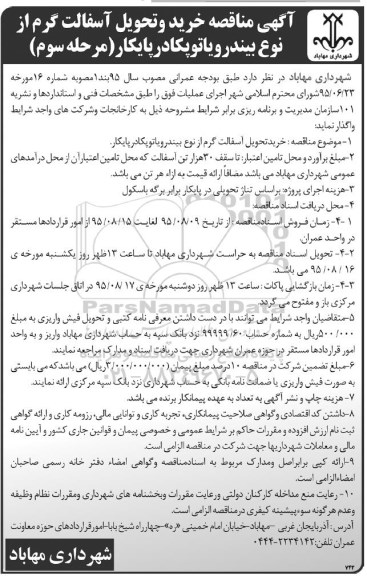 آگهی مناقصه خرید وتحویل آسفالت گرم از
نوع بیندرویاتوپکادرپایکار(مرحله سوم)
شهرداری مهاباد
شهرداری مهاباد در نظر دارد طبق بودجه عمرانی مصوب سال ۹۵بند۱مصوبه شماره ۱۶مورخه
۹۵/۰۶/۲۳شورای محترم اسلامی شهر اجرای عملیات فوق را طبق مشخصات فنی و استانداردها و نشریه
۱۰۱سازمان مدیریت و برنامه ریزی برابر شرایط مشروحه ذیل به کارخانجات وشرکت های واجد شرایط
واگذار نماید:
۱-موضوع مناقصه : خریدتحویل آسفالت گرم از نوع بیندرویاتوپکادرپایکار.
۲-مبلغ برآورد و محل تامین اعتبار: تا سقف ۳۰هزار تن آسفالت که محل تامین اعتبار آن از محل درآمدهای
عمومی شهرداری مهاباد می باشد مضافا ارائه قیمت به ازاء هر تن می باشد.
۳-هزینه اجرای پروژه: براساس تناژ تحویلی در پایکار برابر برگه باسکول
۴- محل دریافت اسناد مناقصه:
۴-۱- زمان فروش اسنادمناقصه : از تاریخ ۹۵/۰۸/۰۹ لغایت ۹۵/۰۸/۱۵ از امور قراردادها مستقر
در واحد عمران.
۴-۲- تحویل اسناد مناقصه به حراست شهرداری مهاباد تا ساعت ۱۳ظهر روز یکشنبه مورخه ی
۹۵/۰۸/۱۶ می باشد.
۴-۳- زمان بازگشایی پاکات : ساعت ۱۳ ظهر روز دوشنبه مورخه ی ۹۵/۰۸/۱۷ در اتاق جلسات شهرداری
مرکزی باز و مفتوح می گردد.
۵-متقاضیان واجد شرایط می توانند با در دست داشتن معرفی نامه کتبی و تحویل فیش واریزی به مبلغ
۵۰۰/۰۰۰ریال به شماره حساب ۹۹۹۹۹/۶۰ نزد بانک سپه به حساب شهرداری مهاباد واریز و به واحد
امور قراردادها مستقر در حوزه عمران شهرداری جهت دریافت اسناد و مدارک مراجعه نمایند.
۶-مبلغ تضمین شرکت در مناقصه ۱۰درصد مبلغ پیمان (۳/۰۰۰/۰۰۰/۰۰۰ریال) می باشد که می بایستی
به صورت فیش واریزی یا ضمانت نامه بانکی به حساب شهرداری نزد بانک سپه مرکزی ارائه نمایند.
۷- هزینه چاپ و نشر آگهی به تعداد به عهده پیمانکار برنده می باشد.
۸-داشتن کد اقتصادی و گواهی صلاحیت پیمانکاری، تجربه کاری و توانایی مالی، رزومه کاری و ارائه گواهی
ثبت نام ارزش افزوده و مقررات حاکم بر شرایط عمومی و خصوصی پیمان و قوانین جاری کشور و آیین نامه
مالی و معاملات شهرداریها جهت شرکت در مناقصه الزامی است.
۹-ارائه کپی برابراصل ومدارک مربوط به اسنادمناقصه وگواهی امضاء دفتر خانه رسمی صاحبان
امضاءالزامی است.
۱۰- رعایت منع مداخله کارکنان دولتی ورعایت مقررات وبخشنامه های شهرداری ومقررات نظام وظیفه
وعدم هرگونه سوءپیشینه کیفری درمناقصه الزامی است.
آدرس : آذربایجان غربی -مهاباد-خیابان امام خمینی «ره»-چهارراه شیخ بابا-امورقراردادهای حوزه معاونت
عمران تلفن:۲۲۳۴۱۴۲-۰۴۴۴
شهرداری مهاباد
۷۲۲